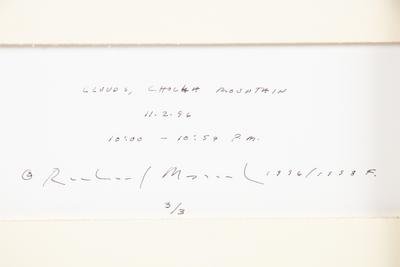 CLOUDS, CHOLLA MOUNTAIN
11.2.96
10:00 - 10:59 P.M.
© Richard Misrach 1996/1998 F.
3/3